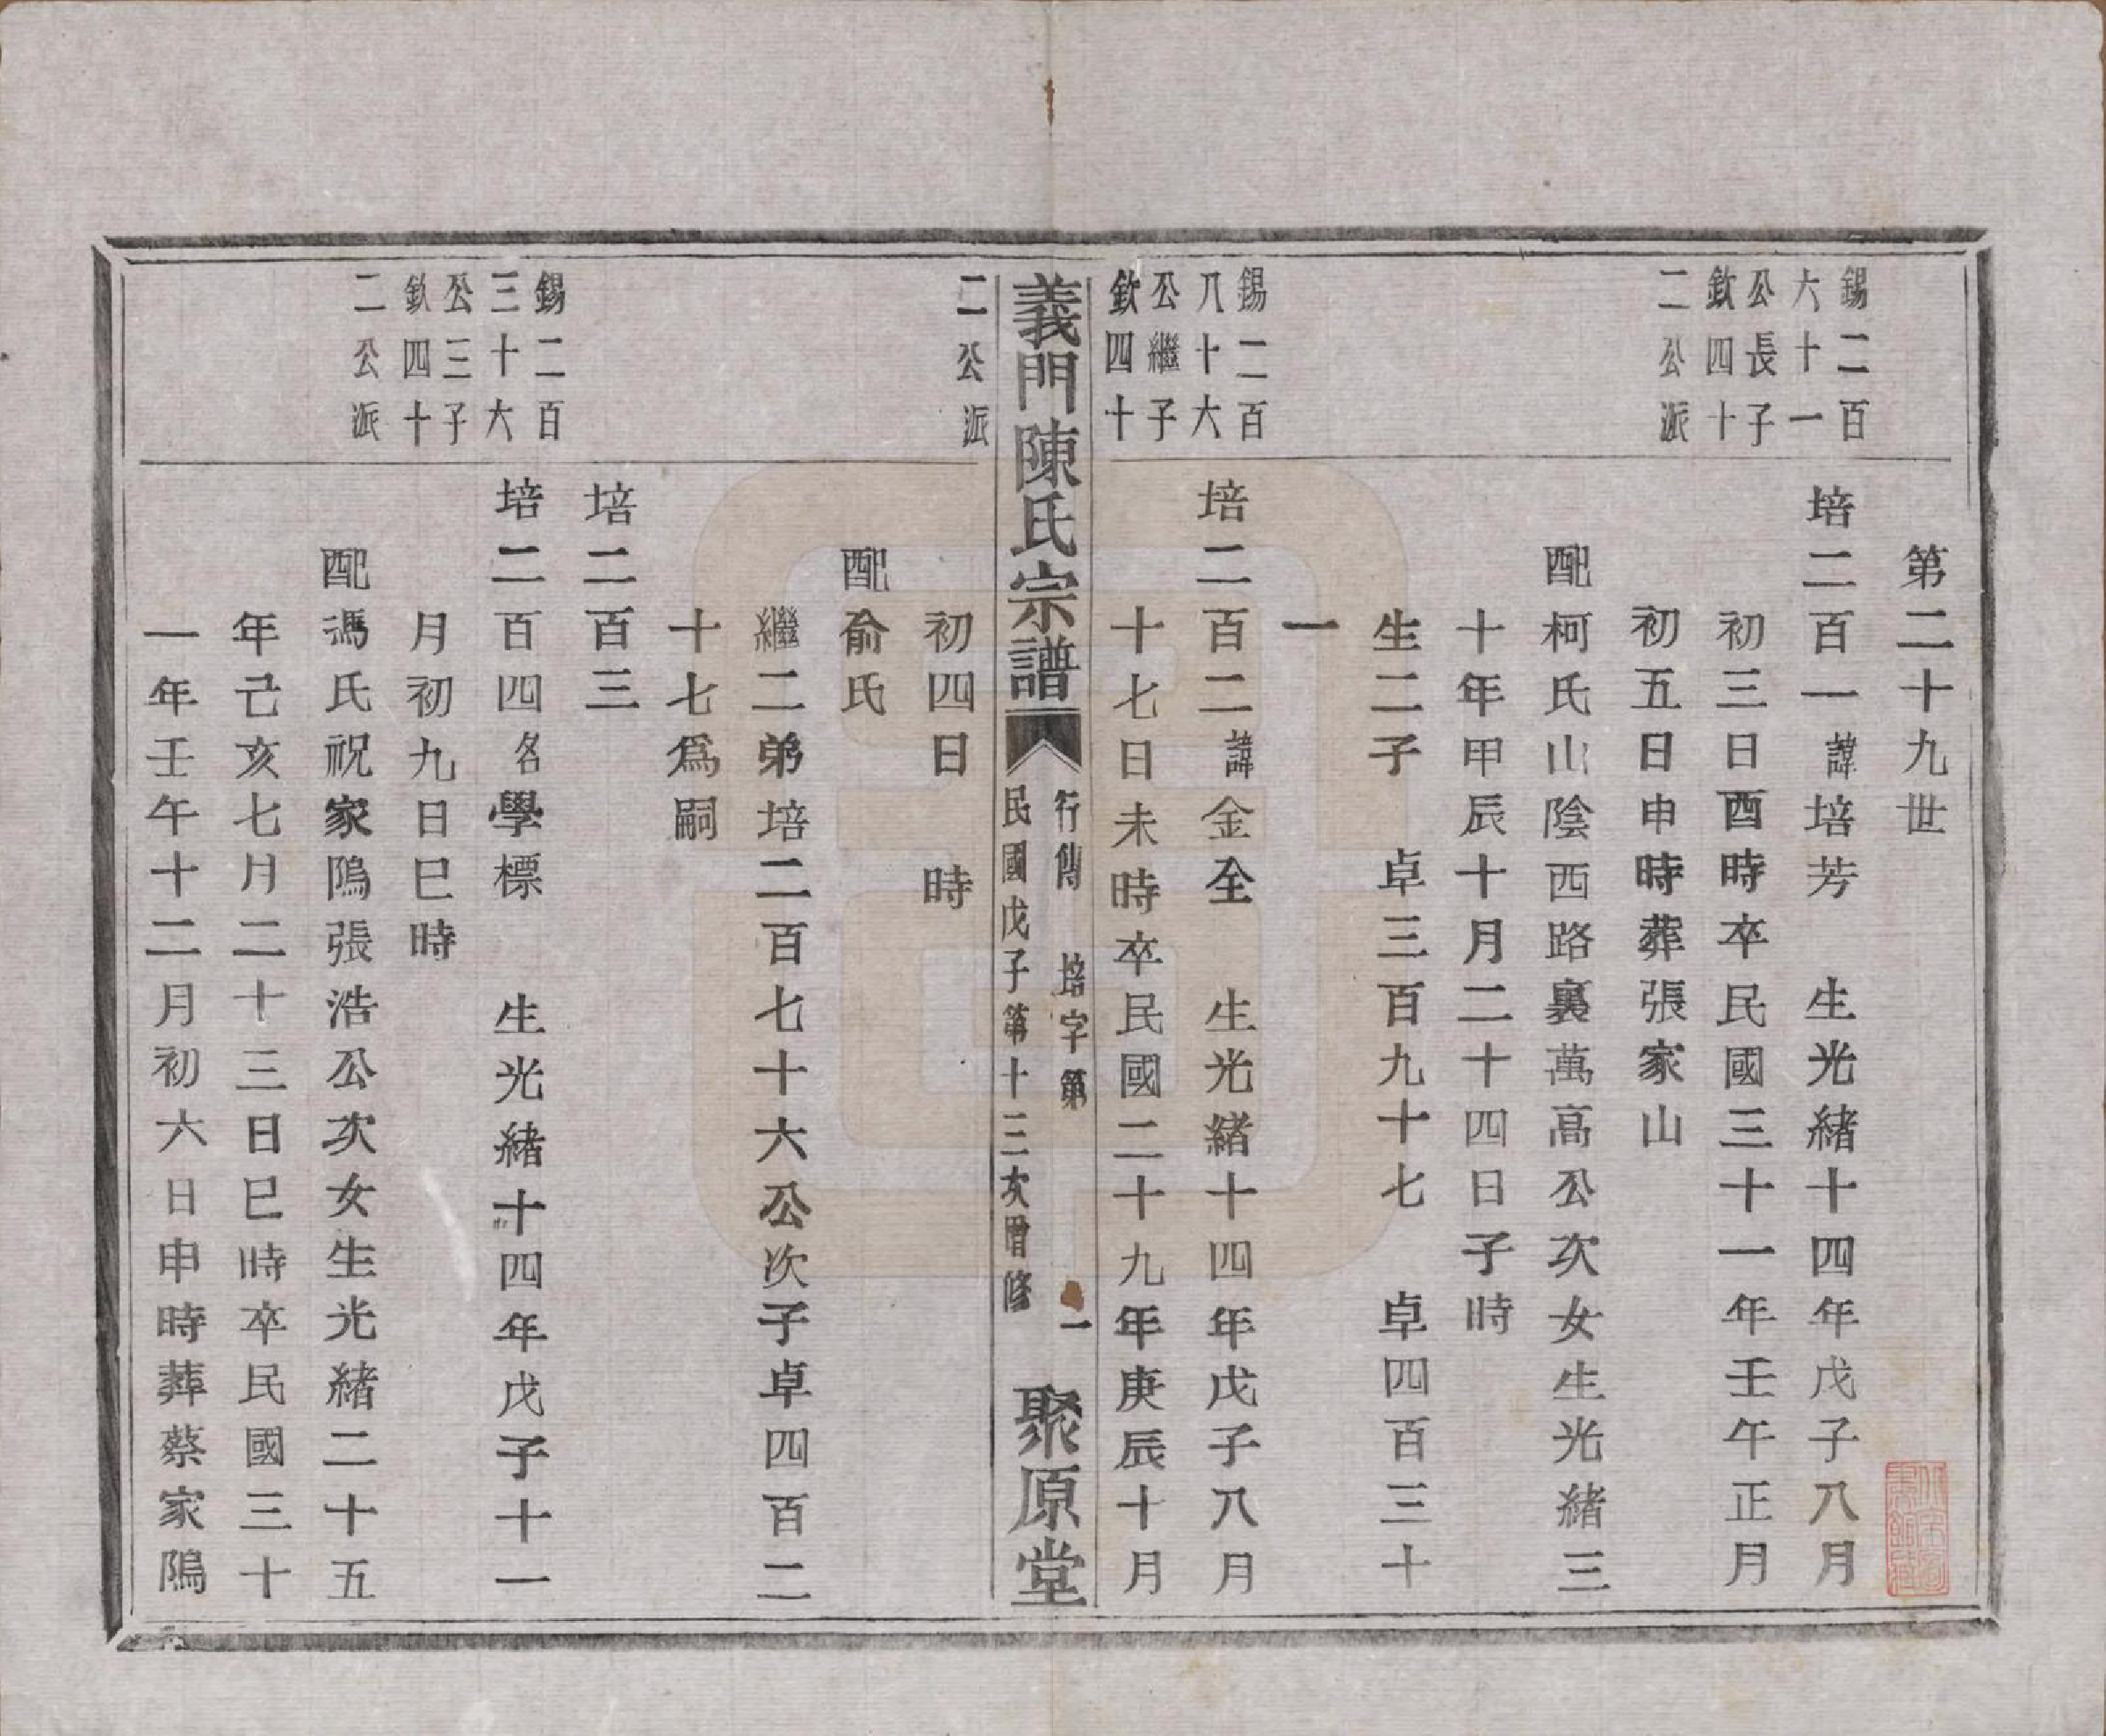 第二十九世
錫二百
六十一
公長子
欽四十
二公派
培二百一諱培芳　生光緒十四年戊子八月
初三日酉時卒民國三十一年壬午正月
初五日申時葬張家山
配柯氏山陰西路裏萬高公次女生光緒三
十年甲辰十月二十四日子時
生二子　卓三百九十七　卓四百三十
一
錫二百
八十六
公繼子
欽四十
二公派
培二百二諱金全　生光緒十四年戊子八月
十七日未時卒民國二十九年庚辰十月
義門陳氏宗譜
行傳　培字第　一
民國戊子第十三次增修
聚原堂
初四日　時
配俞氏
繼二弟培二百七十六公次子卓四百二
十七爲嗣
培二百三
錫二百
三十六
公三子
欽四十
二公派
培二百四名學標　生光緒十四年戊子十一
月初九日巳時
配馮氏祝家隖張浩公次女生光緒二十五
年己亥七月二十三日巳時卒民國三十
一年壬午十二月初六日申時葬蔡家隖